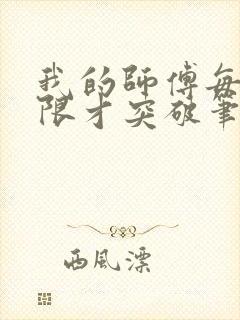 我的師傅每
限才突破筆
西風漂